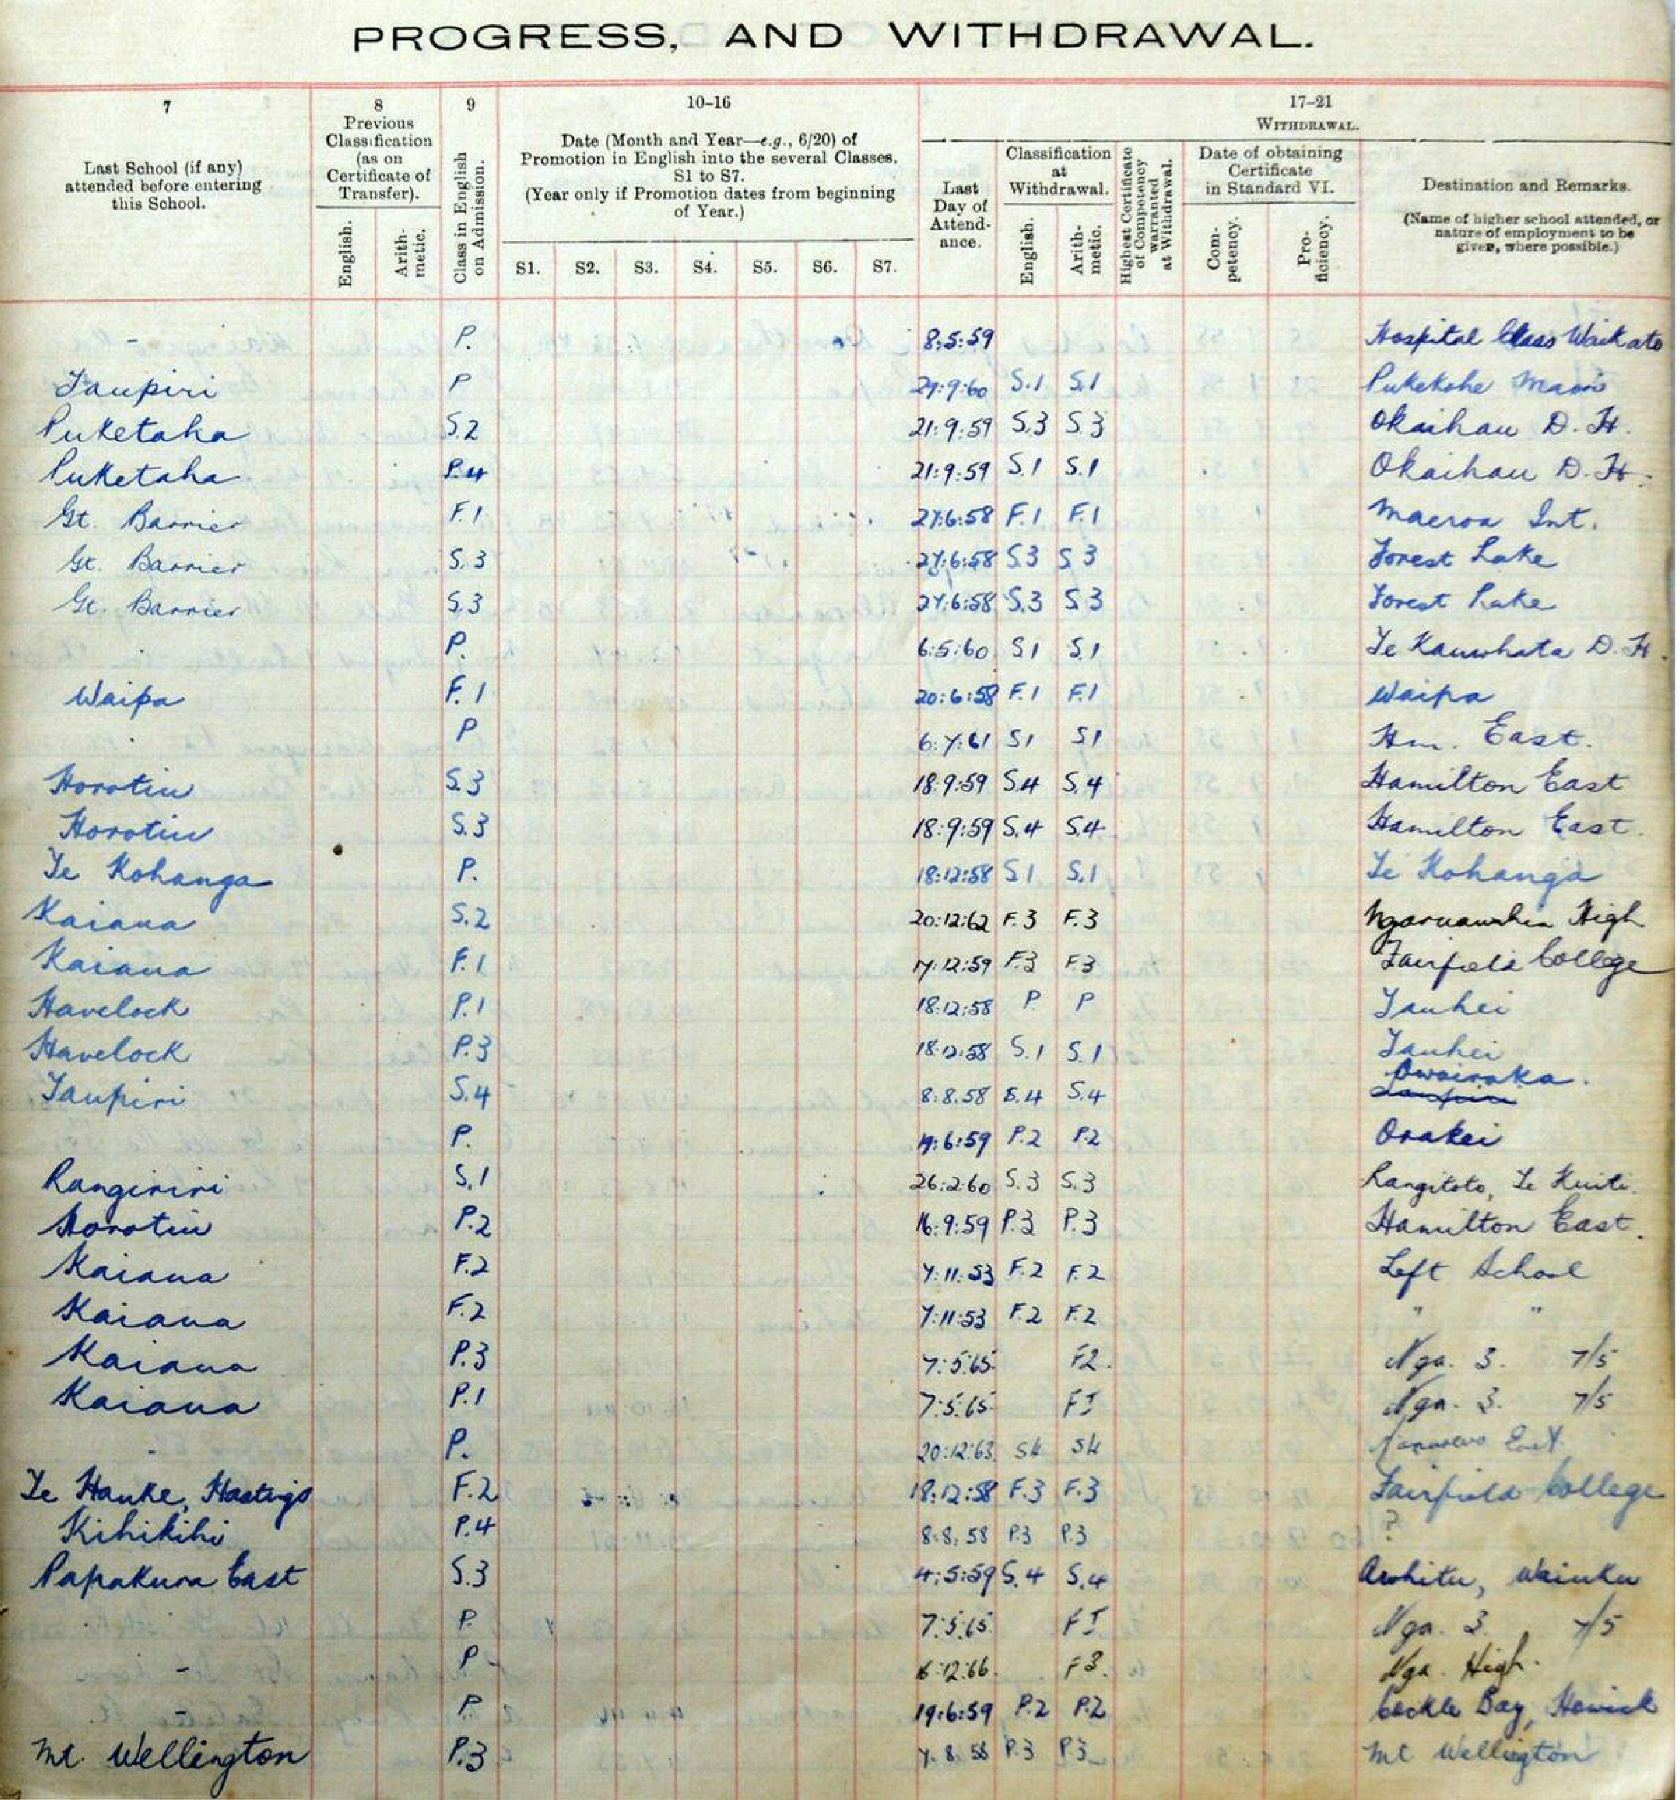 PROGRESS, AND WITHDRAWAL.
7 8 9 10–16 17–21
Last School (if any) attended before entering this School.
Previous Classification (as on Certificate of Transfer).
English. Arithmetic.
Class in English on Admission.
Date (Month and Year—e.g., 6/20) of Promotion in English into the several Classes, S1 to S7.
(Year only if Promotion dates from beginning of Year.)
S1. S2. S3. S4. S5. S6. S7.
WITHDRAWAL.
Last Day of Attendance.
Classification at Withdrawal.
English. Arithmetic.
Highest Certificate of Competency warranted at Withdrawal.
Date of obtaining Certificate in Standard VI.
Competency. Proficiency.
Destination and Remarks.
(Name of higher school attended, or nature of employment to be given, where possible.)
- P. 8:5:59 Hospital Class Waikato
Taupiri P 29:9:60 S.1 S.1 Pukekohe Maori
Puketaha S.2 21:9:59 S.3 S.3 Okaihau D. H.
Puketaha P.4 21:9:59 S.1 S.1 Okaihau D. H.
Gt. Barrier F.1 27:6:58 F.1 F.1 Maeroa Int.
Gt. Barrier S.3 27:6:58 S3 S3 Forest Lake
Gt. Barrier S.3 27:6:58 S.3 S3 Forest Lake
P. 6:5:60 S1 S.1 Te Kauwhata D. H.
Waipa F.1 20:6:58 F.1 F.1 Waipa
P 6:7:61 S1 S1 Hm. East.
Horotiu S.3 18:9:59 S.4 S.4 Hamilton East
Horotiu S.3 18:9:59 S.4 S.4 Hamilton East.
Te Kohanga P. 18:12:58 S1 S.1 Te Kohanga
Kaiaua S.2 20:12:62 F.3 F.3 Ngaruawahia High
Kaiaua F.1 17:12:59 F.3 F.3 Fairfield College
Havelock P.1 18:12:58 P P Tauhei
Havelock P.3 18:12:58 S.1 S.1 Tauhei
Taupiri S.4 8.8.58 S.4 S.4 Owairaka.
Taupiri
P. 19:6:59 P.2 P.2 Orakei
Rangiriri S.1 26:2:60 S.3 S.3 Rangitoto, Te Kuiti.
Horotiu P.2 16:9:59 P.3 P.3 Hamilton East.
Kaiaua F.2 7:11:53 F.2 F.2 Left School
Kaiaua F.2 7:11:53 F.2 F.2 " "
Kaiaua P.3 7:5:65 F2. Nga. 3. 7/5
Kaiaua P.1 7:5:65 FI Nga. 3. 7/5
- P. 20:12:63 S4 S4 East
Te Hauke, Hastings F.2 18:12:58 F.3 F.3 Fairfield College
Kihikihi P.4 8.8.58 P.3 P.3 ?
Papakura East S.3 4:5:59 S.4 S.4 Awhitu, Waiuku
P. 7:5:65 FI Nga. 3. 7/5
- P - 6:12:66. F3. Nga. High.
- P. 19:6:59 P.2 P.2 Cockle Bay, Howick
Mt. Wellington P.3 7.8.58 P.3 P.3 Mt Wellington